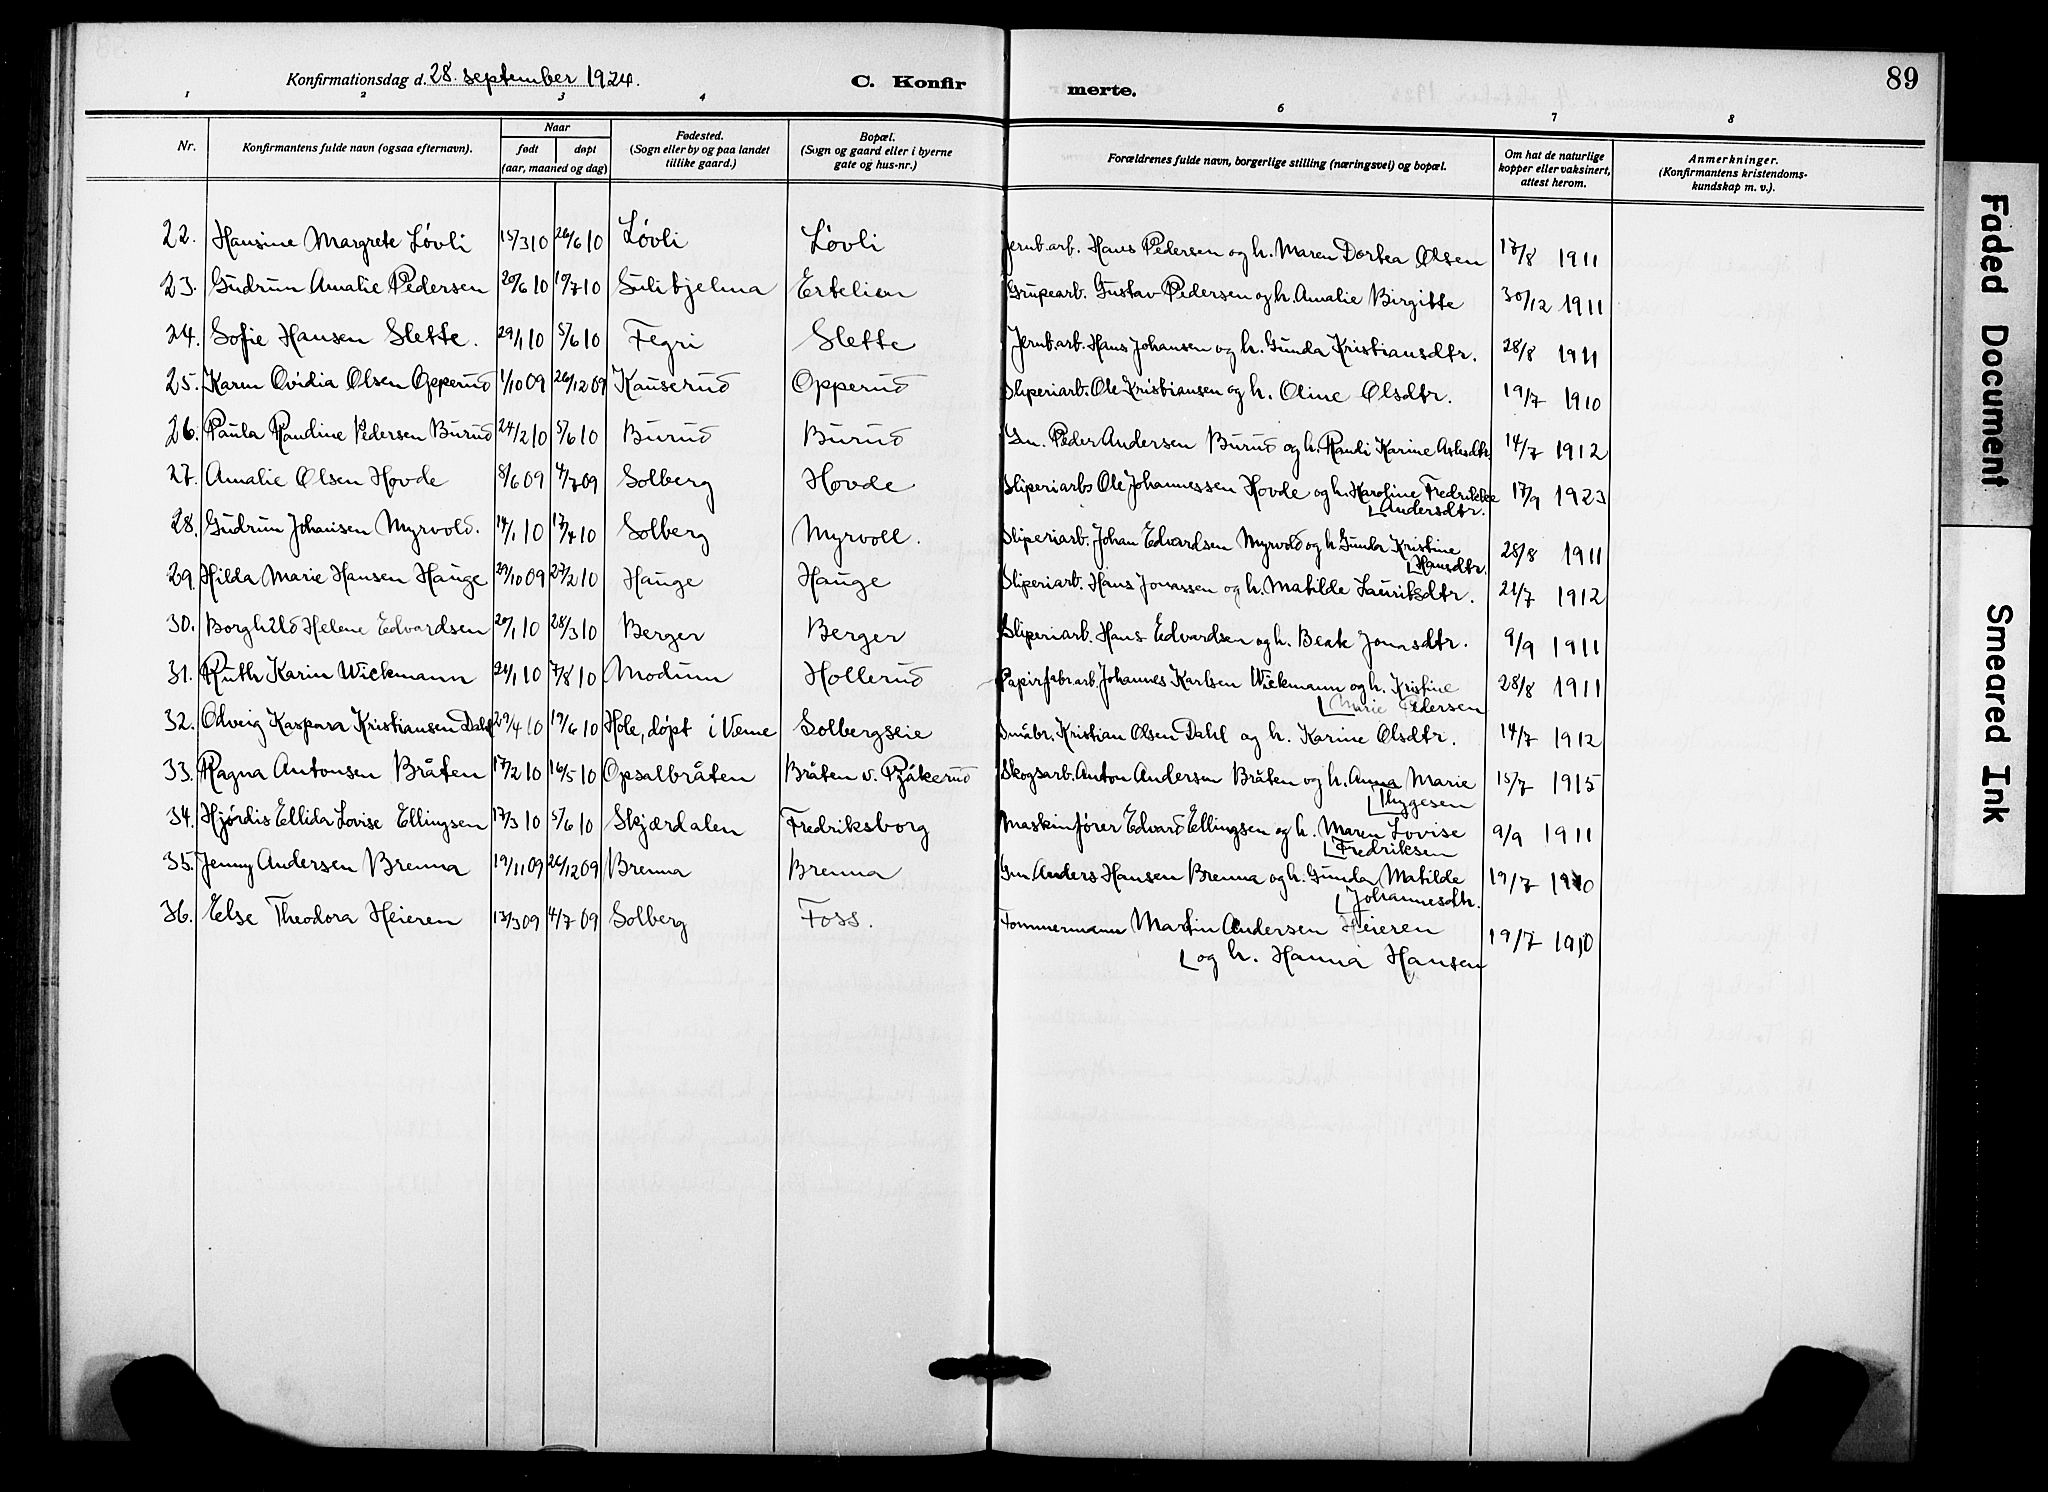 Konfirmationsdag d. 28. september 1924. C. Konfir merte. 89
1 2 3 4 5 6 7 8
Nr. Konfirmantens fulde navn (ogsaa efternavn). Naar født døpt (aar, maaned og dag) Fødested. (Sogn eller by og paa landet tillike gaard.) Bopæl. (Sogn og gaard eller i byerne gate og hus-nr.) Forældrenes fulde navn, borgerlige stilling (næringsvei) og bopæl. Om hat de naturlige kopper eller vaksinert, attest herom. Anmerkninger. (Konfirmantens kristendoms-kundskap m. v.).
22. Hansine Margrete Løvli 15/3 10 26/6 10 Løvli Løvli Jernb.arb. Hans Pedersen og h. Maren Dortea Olsen 17/8 1911
23. Gudrun Amalie Pedersen 20/6 10 10/7 10 Sulitjelma Ertelien Grupearb. Gustav Pedersen og h. Amalie Birgitte 30/12 1911
24. Sofie Hansen Slette. 29/1 10 5/6 10 Fegri Slette Jernb.arb. Hans Johansen og h. Gunda Kristiansdtr. 28/8 1911
25. Karen Ovidia Olsen Opperud 1/10 09 26/12 09 Kauserud Opperud Sliperiarb. Ole Kristiansen og h. Oline Olsdtr. 19/7 1910
26. Paula Randine Pedersen Burud 24/2 10 5/6 10 Burud Burud Gm. Peder Andersen Burud og h. Randi Karine 14/7 1912
27. Amalie Olsen Hovde 8/6 09 4/7 09 Solberg Hovde Sliperiarb. Ole Johannessen Hovde og h. Karoline Fredrikke 17/9 1923
Andersdtr.
28. Gudrun Johansen Myrvold. 14/1 10 17/4 10 Solberg Myrvoll. Sliperiarb. Johan Edvardsen Myrvold og h. Gunda Kristine 28/8 1911
Hansdtr.
29. Hilda Marie Hansen Hauge 29/10 09 27/2 10 Hauge Hauge Sliperiarb. Hans Jonassen og h. Matilde Lauritsdtr. 21/7 1912
30. Borghild Helene Edvardsen 20/1 10 28/3 10 Berger Berger Sliperiarb. Hans Edvardsen og h. Beate Jonasdtr. 9/9 1911
31. Ruth Karin Wickmann 24/1 10 7/8 10 Modum Hollerud Papirfabr.arb. Johannes Karlsen Wickmann og h. Kristine 28/8 1911
Marie Pedersen
32. Odveig Kaspara Kristiansen Dahl 29/4 10 19/6 10 Hole, døpt i Væme Solbergseie Småbr. Kristian Olsen Dahl og h. Karine Olsdtr. 14/7 1912
33. Ragna Antonsen Bråten 17/2 10 16/5 10 Opsalbråten Bråten v. Bjåkerud Skogsarb. Anton Andersen Bråten og h. Anna Marie 15/7 1915
Thygesen
34. Hjørdis Ellida Lovise Ellingsen 17/3 10 5/6 10 Skjærdalen Fredriksborg Maskinfører Edvard Ellingsen og h. Maren Lovise 9/9 1911
Fredriksen
35. Jenny Andersen Brenna 19/11 09 26/12 09 Brenna Brenna Gm. Anders Hansen Brenna og h. Gunda Matilde 19/7 1910
Johannesdtr.
36. Else Theodora Heieren 13/3 09 4/7 09 Solberg Foss. Tømmermann Martin Andersen Heieren 19/7 1910
og h. Hanna Hansen
Faded Document
Smeared Ink